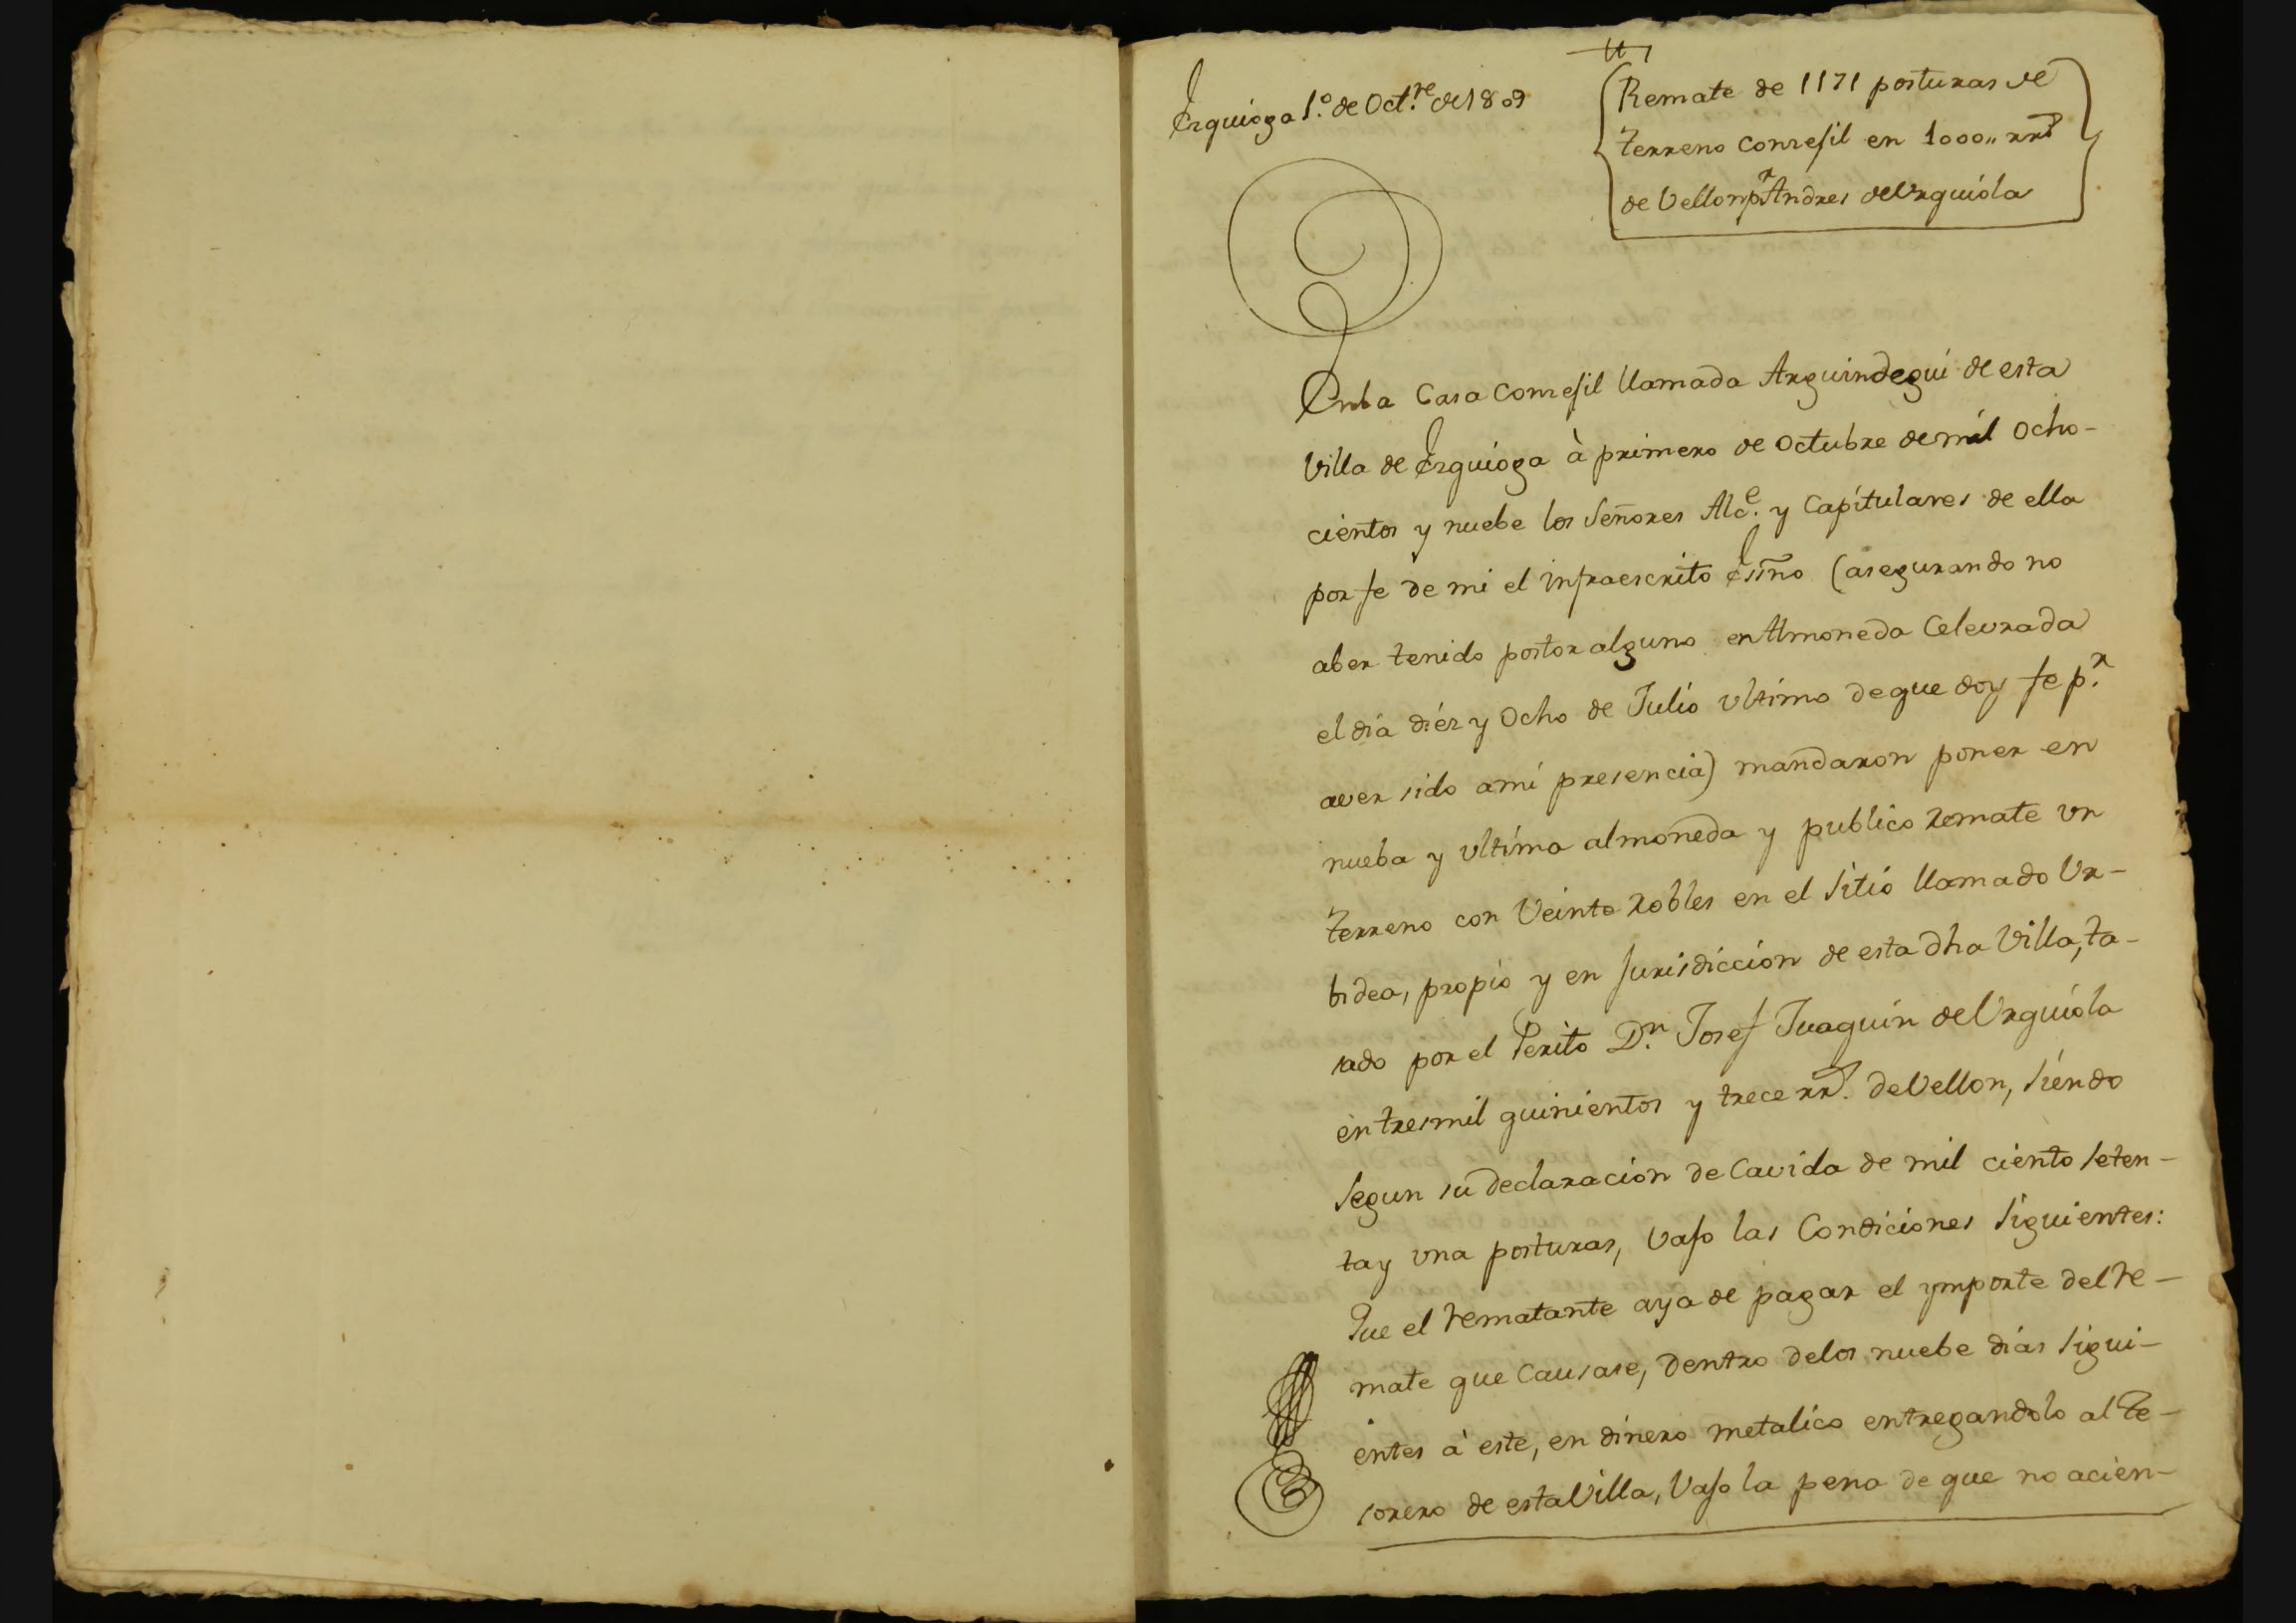 Ezquioga 1.º de Oct.re de 1809
Remate de 1171 posturas de
terreno Consejil en 1000,, rr.s
de Vellon p.r Andres de Urquiola
En la Casa Consejil llamada Arguindegui de esta
Villa de Ezquioga à primero de Octubre de mil Ocho-
cientos y nuebe los Señores Alc.e y Capitulares de ella
por fe de mi el infraescrito Essno (asegurando no
aber tenido postor alguno en Almoneda Celevrada
el dia diéz y Ocho de Julio ultimo de que doy fe p.r
aver sido a mi presencia) mandaron poner en
nueba y ultima almoneda y publico Remate un
terreno con Veinte Robles en el Sitio llamado Ur-
bidea, propio y en Jurisdiccion de esta dha Villa, ta-
sado por el Perito D.n Josef Juaquin de Urquiola
en tres mil quinientos y trece rr.s de Vellon, Siendo
Segun su declaracion de Cavida de mil ciento Seten-
ta y una posturas, Vajo las Condiciones Siguientes:
Que el Rematante aya de pagar el ymporte del Re-
mate que Causase, dentro de los nuebe dias Sigui-
entes à este, en dinero metalico entregandolo al Te-
sorero de esta Villa, Vajo la pena de que no acien-